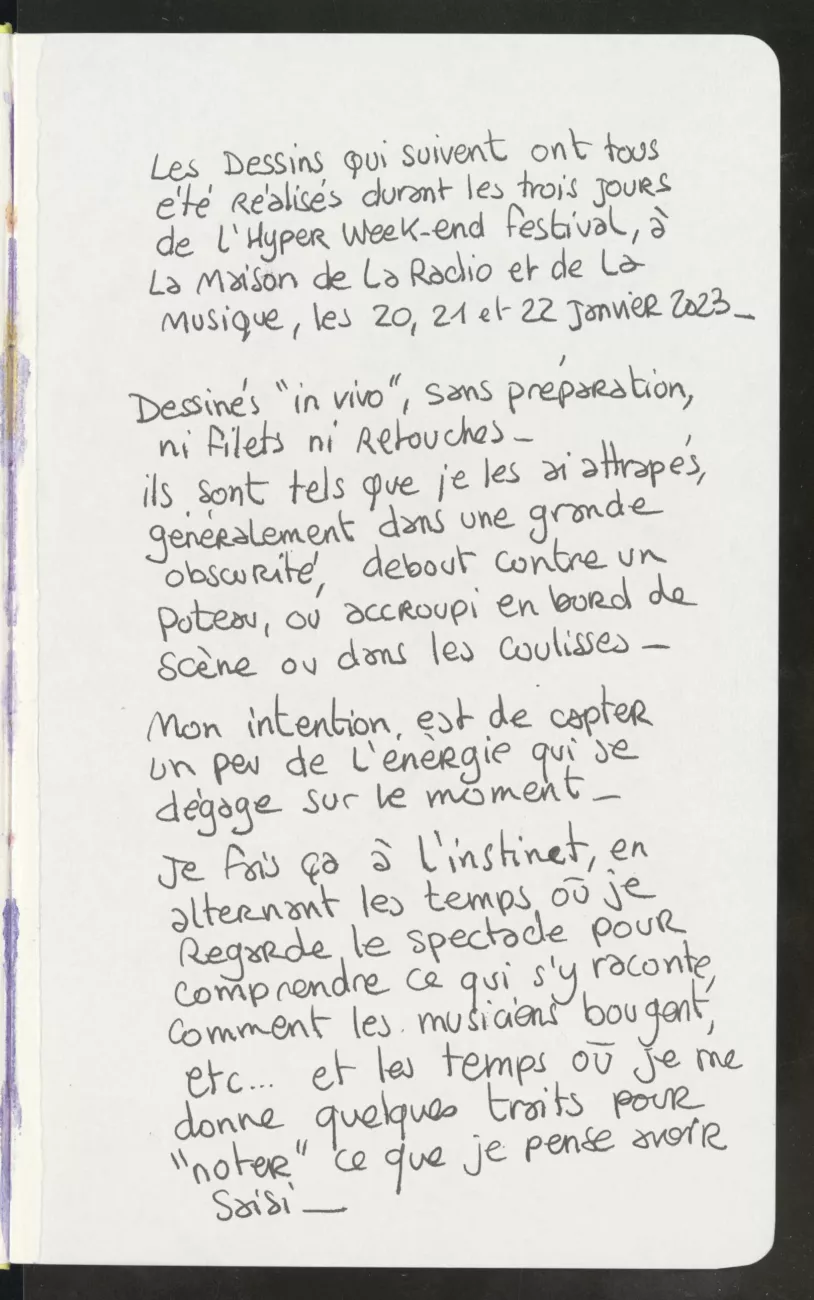 Les Dessins qui suivent ont tous
été Réalisés durant les trois JOURS
de l'Hyper Week-end festival, à
La Maison de La Radio et de La
Musique, les 20, 21 et 22 Janvier 2023_
Dessinés "in vivo", sans préparation,
ni filets ni Retouches_
ils sont tels que je les ai attrapés,
généralement dans une grande
obscurité, debout contre un
Poteau, ou accroupi en bord de
Scène ou dans les coulisses_
Mon intention, est de capter
un peu de l'énèrgie qui se
dégage sur le moment_
Je fais ça à l'instinct, en
alternant les temps où je
Regarde le spectacle pour
comprendre ce qui s'y raconte,
comment les musiciens bougent,
etc... et les temps où je me
donne quelques traits pour
"noter" ce que je pense avoir
Saisi_